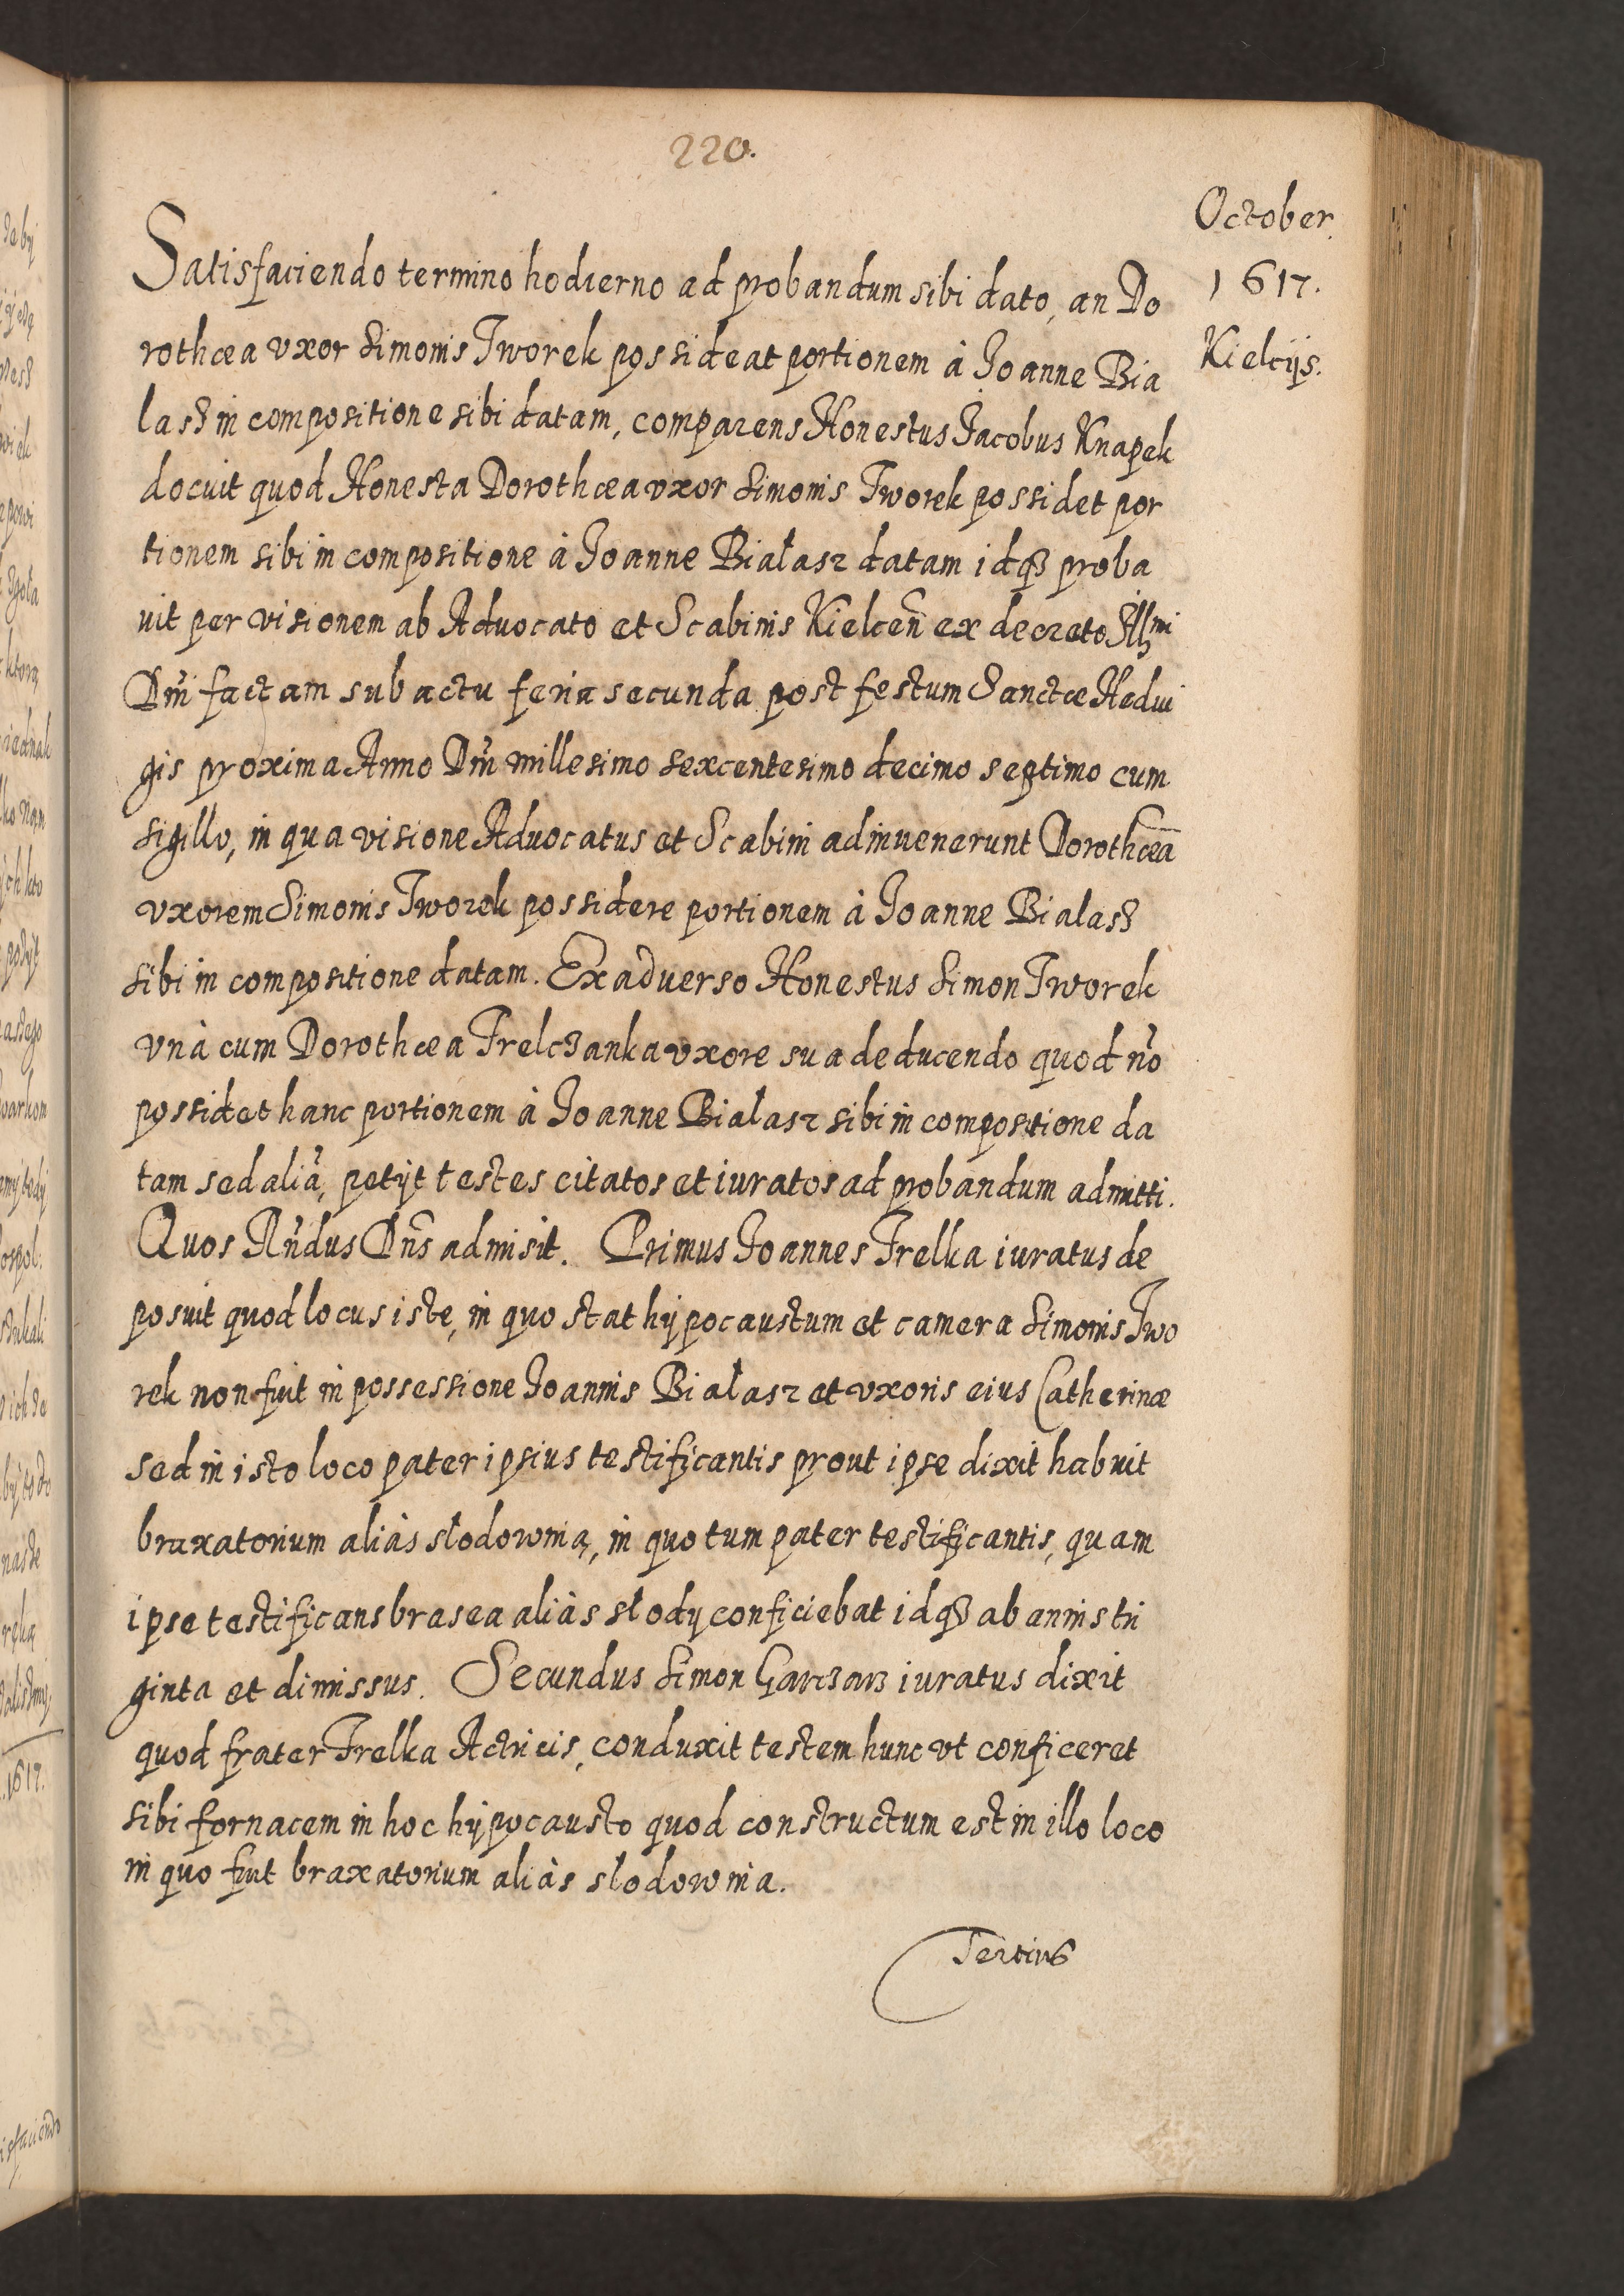 220.
October
1617.
Kielcijs.
Satisfaciendo termino hodierno ad probandum sibi dato, an Do
rothœa vxor Simonis Tworek possideat portionem à Joanne Bia
lasz in compositione sibi datam, comparens Honestus Jacobus Knapek
docuit quod Honesta Dorothœa vxor Simonis Tworek possidet por
tionem sibi in compositione à Joanne Białasz datam idqꝫ proba
uit per visionem ab Aduocato et Scabinis Kielceñ ex decreto Illmi
Dñi factam sub actu feria secunda post festum Sanctœ Hedui
gis proxima Anno Dñi millesimo sexcentesimo decimo septimo cum
sigillo, in qua visione Aduocatus et Scabini adinuenerunt Dorothœā
vxorem Simonis Tworek possidere portionem à Joanne Bialasz
sibi in compositione datam. Ex aduerso Honestus Simon Tworek
vnà cum Dorothœa Frelczanka vxore sua deducendo quod nõ
possidet hanc portionem à Joanne Białasz sibi in compositione da
tam sed aliã, petijt testes citatos et iuratos ad probandum admitti.
Quos Rñdus Dñs admisit. Primus Joannes Frelka iuratus de
posuit quod locus iste, in quo stat hÿpocaustum et camera Simonis Two
rek non fuit in possessione Joannis Białasz et vxoris eius Catherinæ
sed in isto loco pater ipsius testificantis prout ipse dixit habuit
braxatorium aliàs słodownią, in quo tum pater testificantis, quam
ipse testificans brasea aliàs słody conficiebat idqꝫ ab annis tri
ginta et dimissus. Secundus Simon Garczarz iuratus dixit
quod frater Frelka Actricis, conduxit testem hunc vt conficeret
sibi fornacem in hoc hÿpocausto quod constructum est in illo loco
in quo fuit braxatorium aliàs słodownia.
Tertius